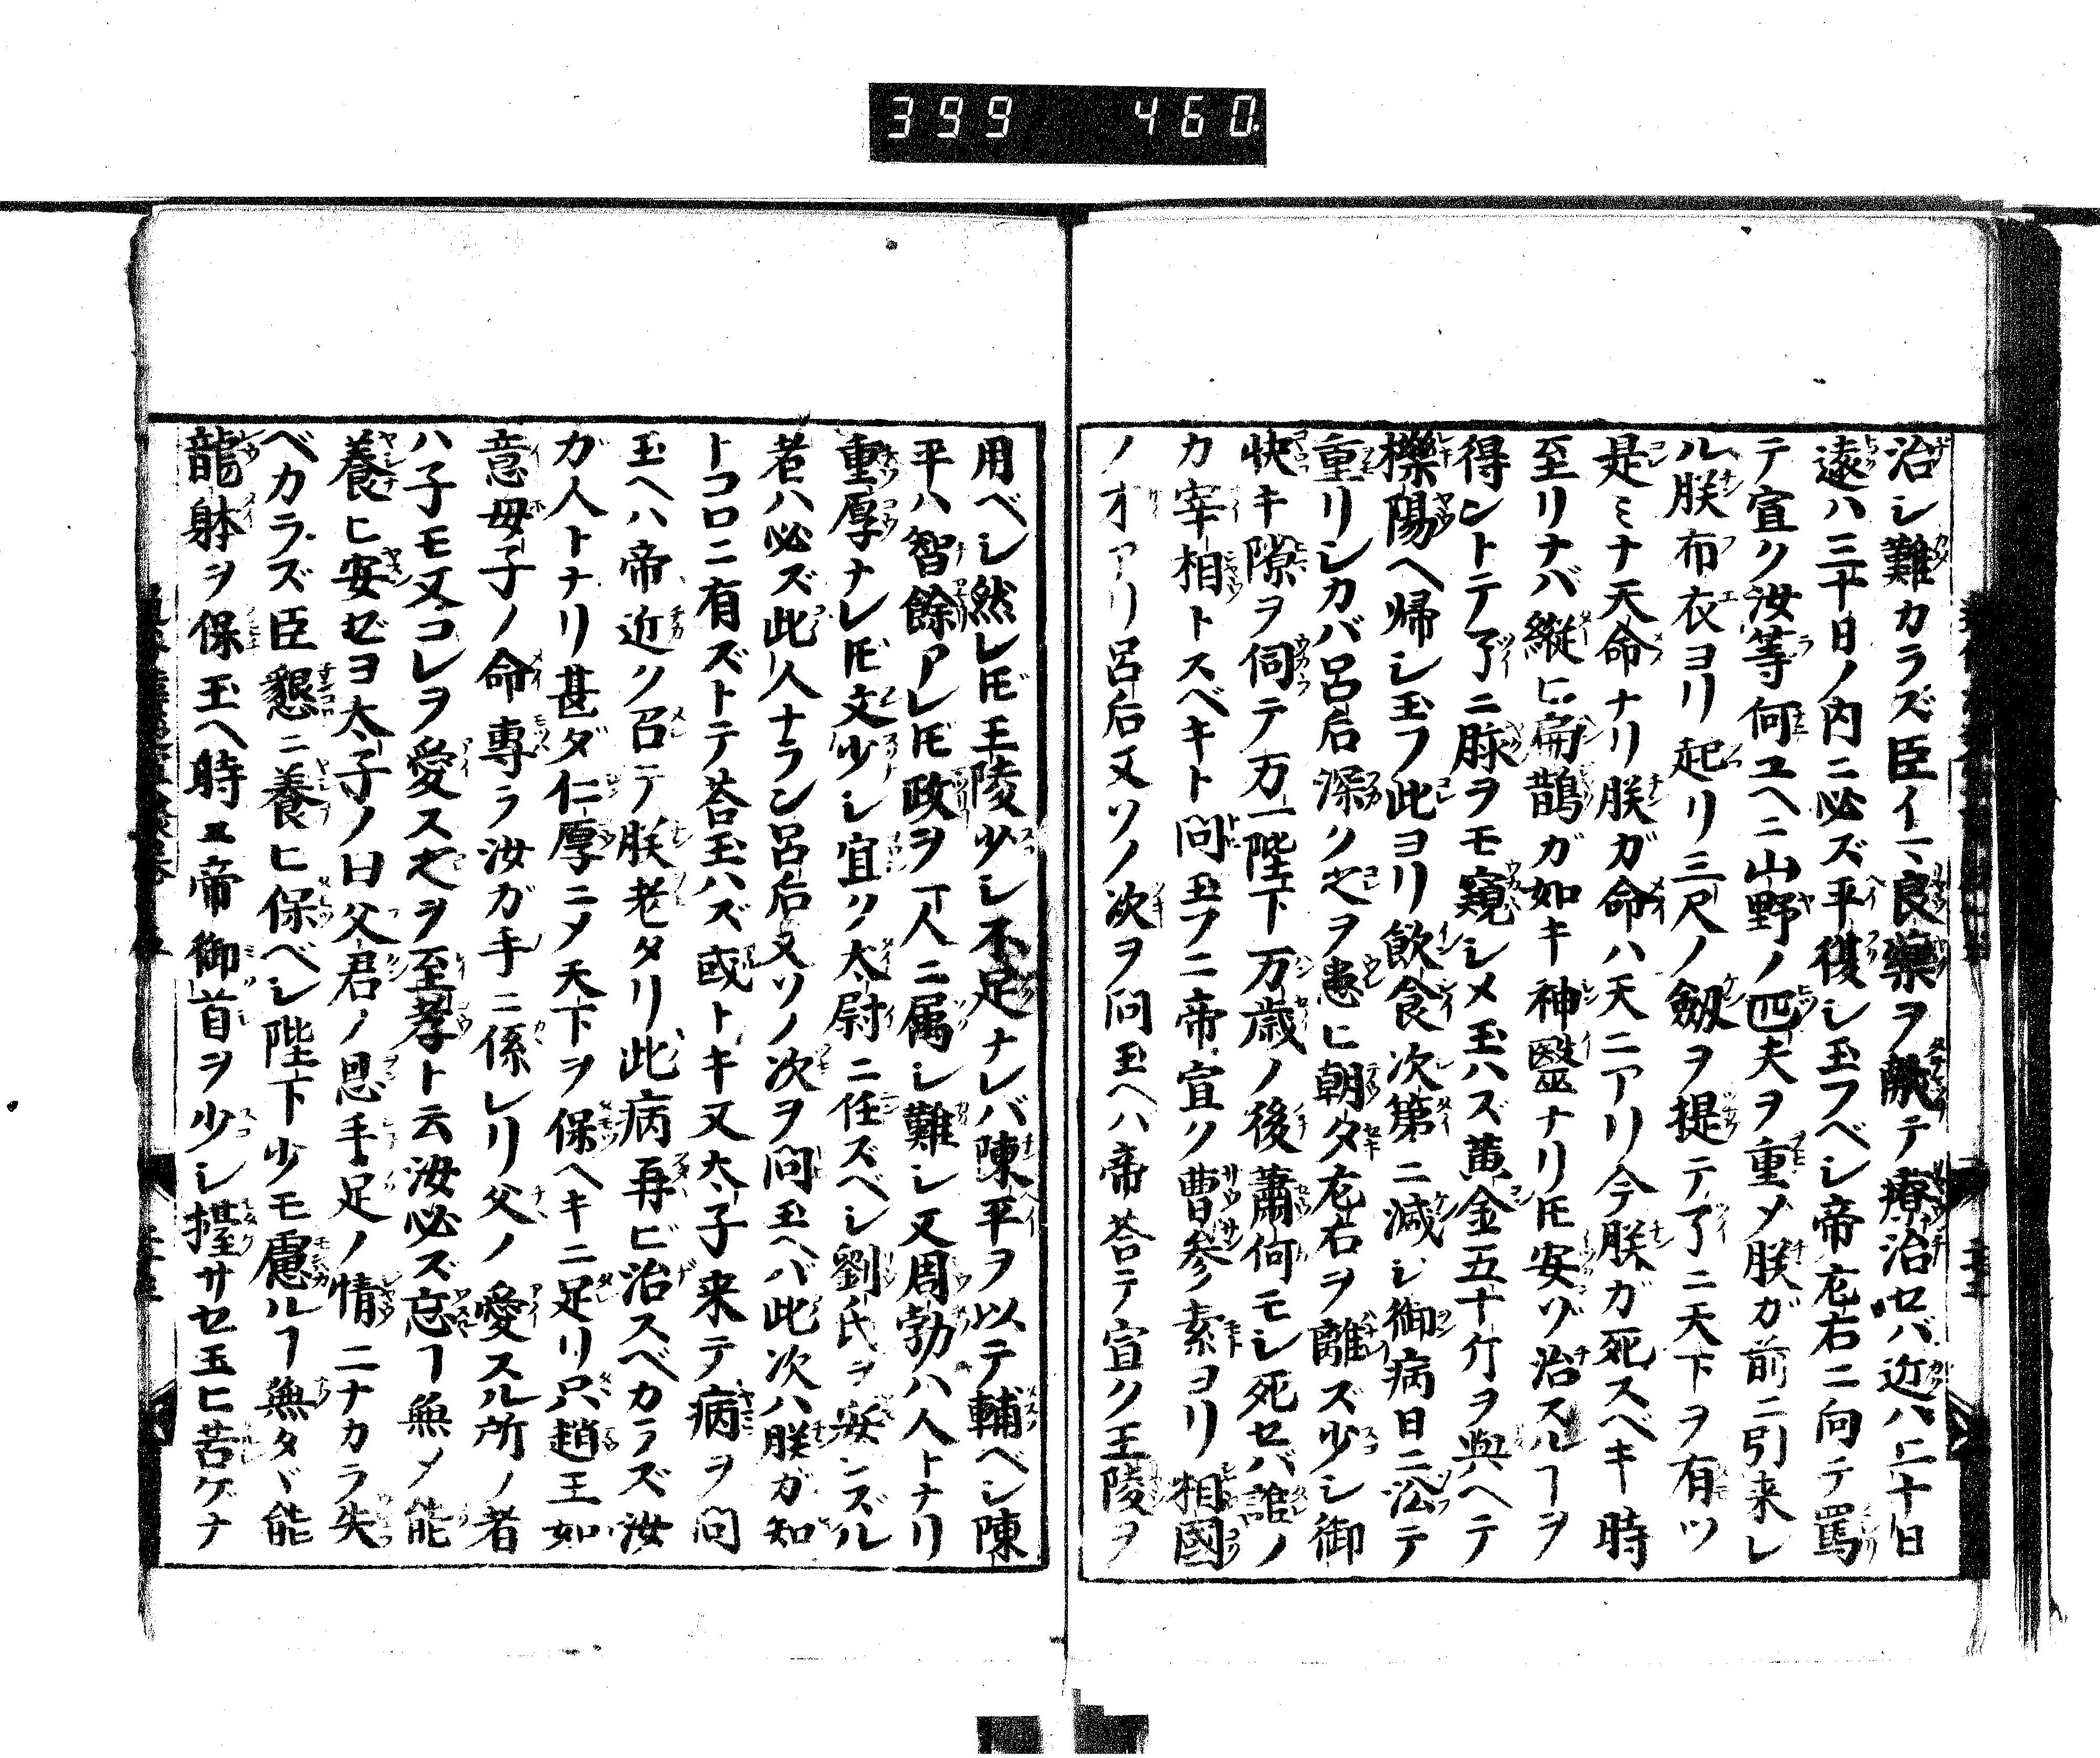 399 460
治シ難カラズ臣イマ良藥ヲ献テ療治セバ近ハ二十日
遠ハ三十日ノ内ニ必ズ平復シ玉フベシ帝左右ニ向テ罵
テ宣ク汝等何ユヘニ山野ノ匹夫ヲ重メ朕ガ前ニ引来レ
ル朕布衣ヨリ起リ三尺ノ劔ヲ提テ了ニ天下ヲ有ツ
是ミナ天命ナリ朕ガ命ハ天ニアリ今朕ガ死スベキ時
至リナバ縦ヒ扁鵲ガ如キ神醫ナリ𪜈安ゾ治スルヿヲ
得ントテ了ニ脉ヲモ窺シメ玉ハズ黄金五十斤ヲ與ヘテ
櫟陽ヘ帰シ玉フ此ヨリ飲食次第ニ減シ御病日ニ㳂テ
重リシカバ呂后深ク之ヲ患ヒ朝夕左右ヲ離ズ少シ御
快キ隙ヲ伺テ万一陛下万歳ノ後蕭何モシ死セバ誰ノ
カ宰相トスベキト問玉フニ帝宣ク曹参素ヨリ相國
ノオアリ呂后又ソノ次ヲ問玉ヘハ帝荅テ宣ク王陵ヲ
用ベシ然レ𪜈王陵少シ不足ナレバ陳平ヲ以テ輔ベシ陳
平ハ智餘アレ𪜈政ヲ一人ニ属シ難シ又周勃ハ人トナリ
重厚ナレ𪜈文少シ宜ク太尉ニ任ズベシ劉氏ヲ安ンズル
者ハ必ズ此人ナラン呂后又ソノ次ヲ問玉ヘバ此次ハ朕ガ知
トコロニ有ズトテ荅玉ハズ或トキ又太子来テ病ヲ問
玉ヘハ帝近ク召テ朕老タリ此病再ビ治スベカラズ汝
ガ人トナリ甚ダ仁厚ニメ天下ヲ保ヘキニ足リ只趙王如
意母子ノ命專ラ汝ガ手ニ係レリ父ノ愛スル所ノ者
ハ子モ又コレヲ愛ス之ヲ至孝ト云汝必ズ忘ヿ無メ能
養ヒ安ゼヨ太子ノ曰父君ノ恩手足ノ情二ナカラ失
ベカラズ臣懇ニ養ヒ保ベシ陛下少モ慮ルヿ無タヾ能
龍躰ヲ保玉ヘ時ニ帝御首ヲ少シ擡サセ玉ヒ苦ゲナ